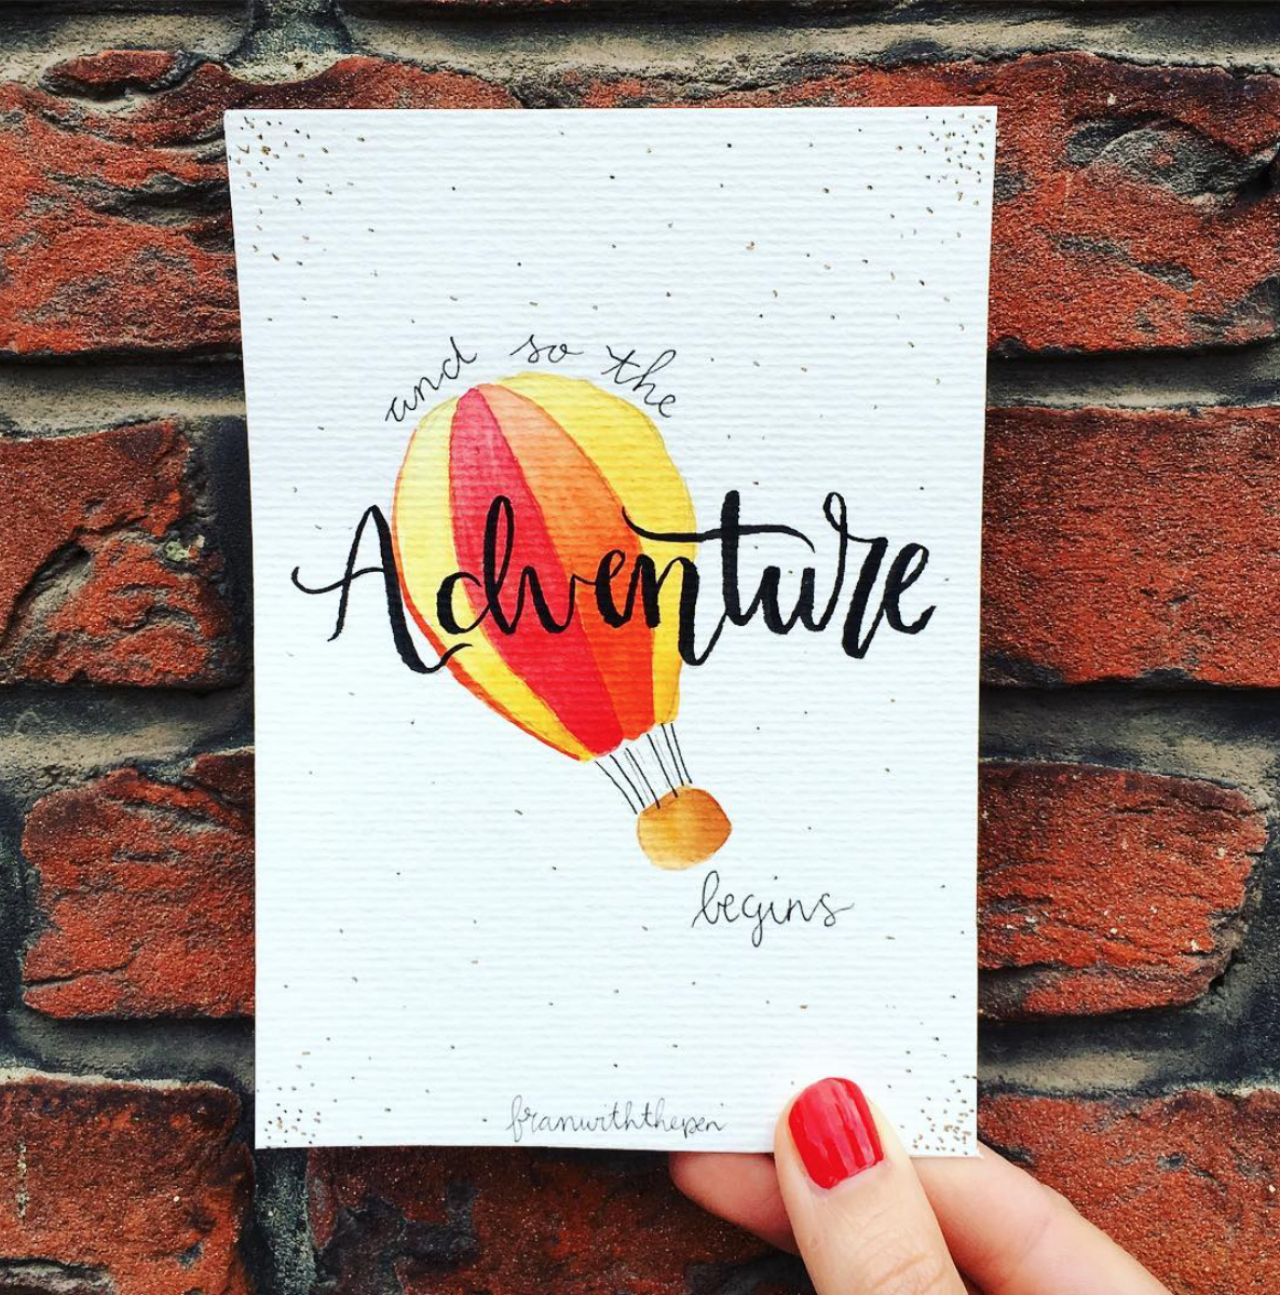 and so the
Adventure
begins
franwiththepen